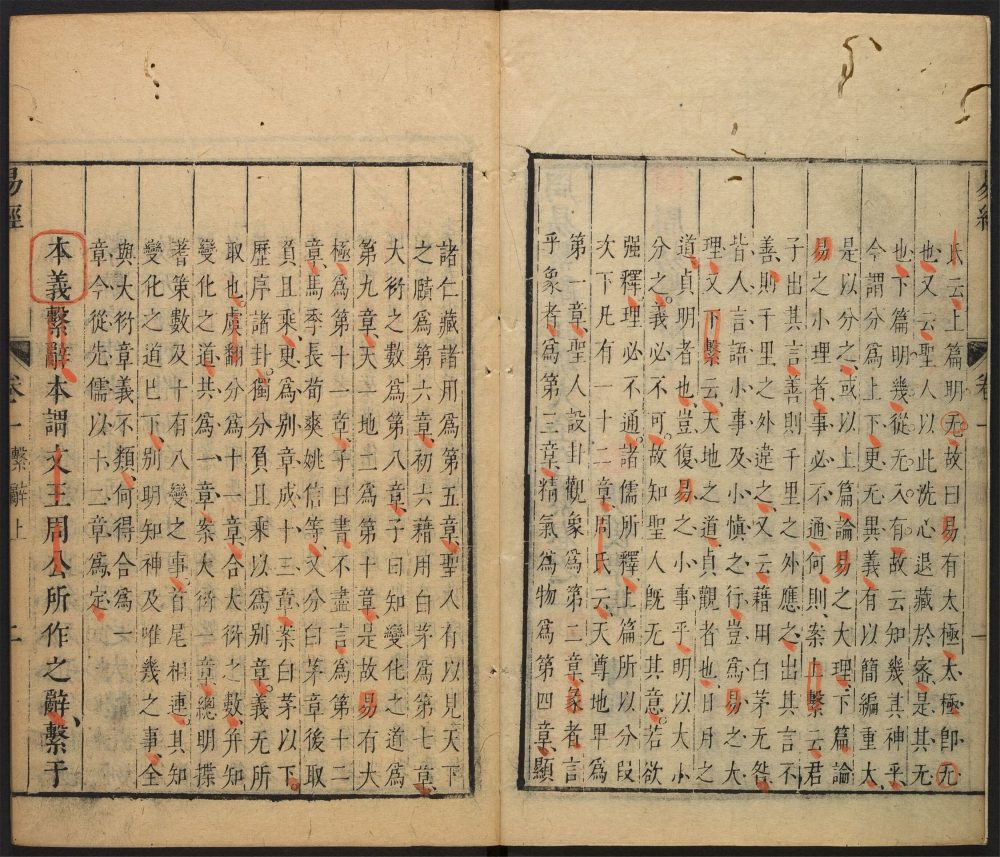 氏云上篇明无故曰易有太極太極卽无
也又云聖人以此洗心退藏於密是其无
也下篇明幾從无入有故云知幾其神乎
今謂分爲上下更无異義有以簡編重大
是以分之或以上篇論易之大理下篇論
易之小理者事必不通何則案上繫云君
子出其言善則千里之外應之出其言不
善則千里之外違之又云藉用白茅无咎
皆人言語小事及小愼之行豈爲易之大
理又下繫云天地之道貞觀者也日月之
道貞明者也豈復易之小事乎明以大小
分之義必不可故知聖人旣无其意若欲
强釋理必不通諸儒所釋上篇所以分段
次下凡有一十二章周氏云天尊地卑爲
第一章聖人設卦觀象爲第二章彖者言
乎象者爲第三章精氣爲物爲第四章顯
諸仁藏諸用爲第五章聖人有以見天下
之賾爲第六章初六藉用白茅爲第七章
大衍之數爲第八章子曰知變化之道爲
第九章天一地二爲第十章是故易有大
極爲第十一章子曰書不盡言爲第十二
章馬季長荀爽姚信等又分白茅章後取
負且乘更爲別章成十三章案白茅以下
歷序諸卦獨分負且乘以爲別章義无所
取也虞翻分爲十一章合大衍之數幷知
變化之道共爲一章案大衍一章總明揲
蓍策數及十有八變之事首尾相連其知
變化之道已下別明知神及唯幾之事全
與大衍章義不類何得合爲一
章今從先儒以十二章爲定
本義繫辭本謂文王周公所作之辭繫于
易經
卷一 繫辭上
二